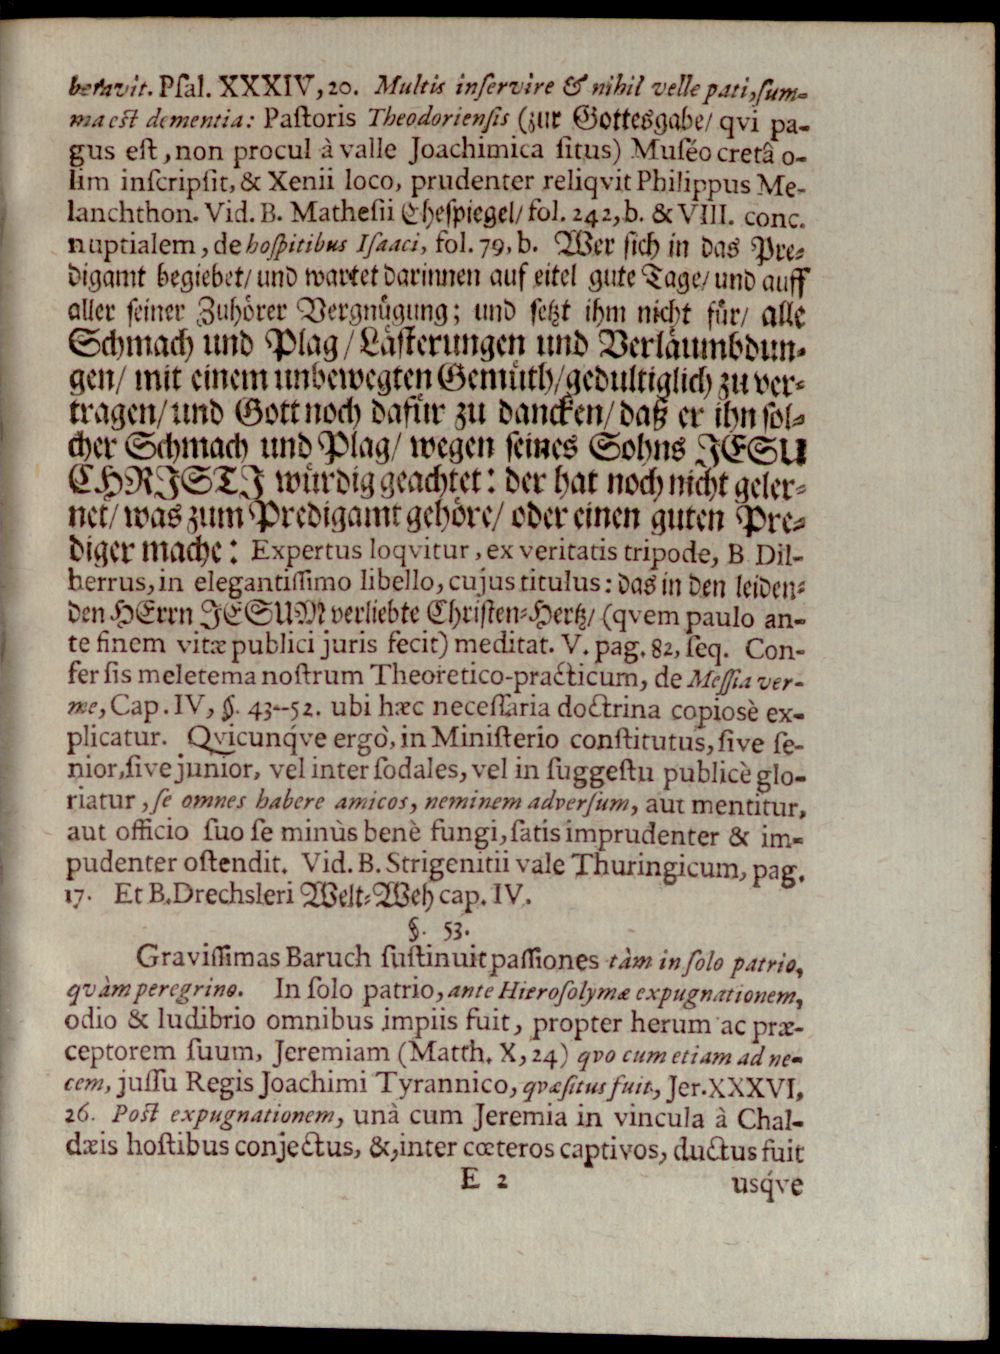 betavit. Pſal. XXXIV, 20. Multis inſervire & nihil velle pati, ſum-
ma eſt dementia: Paſtoris Theodorienſis (zur Gottesgabe/ qvi pa-
gus eſt, non procul à valle Joachimica ſitus) Muſéo cretâ o-
lim inſcripſit, & Xenii loco, prudenter reliqvit Philippus Me-
lanchthon. Vid. B. Matheſii Eheſpiegel/ fol. 242, b. & VIII. conc.
nuptialem, de hoſpitibus Iſaaci, fol. 79, b. Wer ſich in das Pre-
digamt begiebet/ und wartet darinnen auf eitel gute Tage/ und auff
aller ſeiner Zuhörer Vergnügung; und ſetzt ihm nicht für/ alle
Schmach und Plag/ Läſterungen und Verläumbdun-
gen/ mit einem unbewegten Gemüth/ gedultiglich zu ver-
tragen/ und Gott noch dafür zu dancken/ daß er ihn ſol-
cher Schmach und Plag/ wegen ſeines Sohns JESU
CHRISTI würdig geachtet: der hat noch nicht geler-
net/ was zum Predigamt gehöre/ oder einen guten Pre-
diger mache: Expertus loqvitur, ex veritatis tripode, B Dil-
herrus, in elegantiſſimo libello, cujus titulus: das in den leiden-
den HErrn JESUM verliebte Chriſten-Hertz/ (qvem paulo an-
te finem vitæ publici juris fecit) meditat. V. pag. 82, ſeq. Con-
fer ſis meletema noſtrum Theoretico-practicum, de Meſſia ver-
me, Cap. IV, §. 43--52. ubi hæc neceſſaria doctrina copiosè ex-
plicatur. Qvicunq́ve ergò, in Miniſterio conſtitutus, ſive ſe-
nior, ſive junior, vel inter ſodales, vel in ſuggeſtu publicè glo-
riatur, ſe omnes habere amicos, neminem adverſum, aut mentitur,
aut officio ſuo ſe minùs benè fungi, ſatis imprudenter & im-
pudenter oſtendit. Vid. B. Strigenitii vale Thuringicum, pag.
17. Et B. Drechsleri Welt-Weh cap. IV.
§. 53.
Graviſſimas Baruch ſuſtinuit paſſiones tàm in ſolo patrio,
qvàm peregrino. In ſolo patrio, ante Hieroſolymæ expugnationem,
odio & ludibrio omnibus impiis fuit, propter herum ac præ-
ceptorem ſuum, Jeremiam (Matth. X, 24) qvo cum etiam ad ne-
cem, juſſu Regis Joachimi Tyrannico, qvæſitus fuit, Jer. XXXVI,
26. Poſt expugnationem, unâ cum Jeremia in vincula à Chal-
dæis hoſtibus conjectus, &, inter cœteros captivos, ductus fuit
E 2 usq́ve